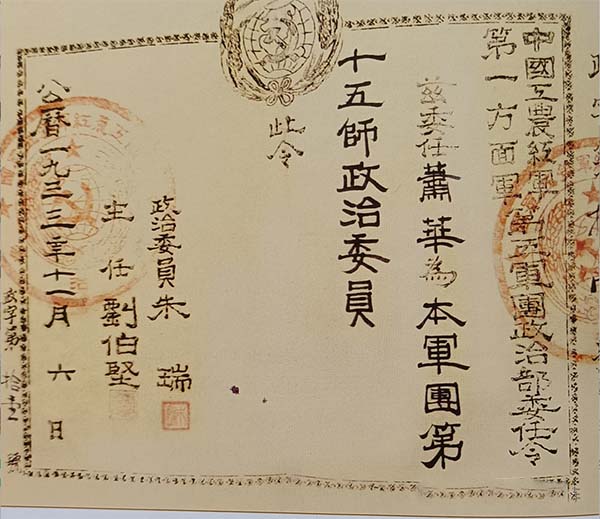 中國工農紅軍第五軍團政治部委任令
第一方面軍
茲委任蕭華為本軍團第
十五師政治委員
此令
政治委員朱瑞
主任劉伯堅
公曆一九三三年十一月六日